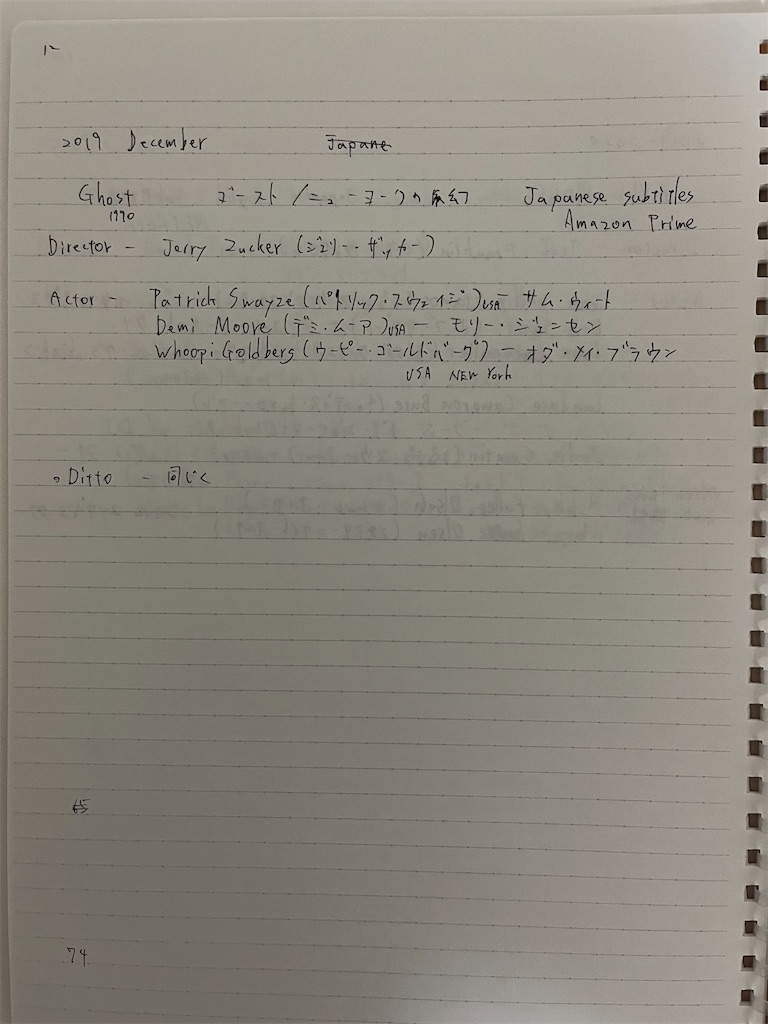 12
2019 December Japane
Ghost ゴースト/ニューヨークの幻 Japanese subtitles
1990 Amazon Prime
Director - Jerry Zucker (ジェリー・ザッカー)
Actor - Patrick Swayze (パトリック・スウェイジ) USA - サム・ウィート
Demi Moore (デミ・ムーア) USA - モリー・ジェンセン
Whoopi Goldberg (ウーピー・ゴールドバーグ) - オダ・メイ・ブラウン
USA NEW York
。Ditto - 同じく
74